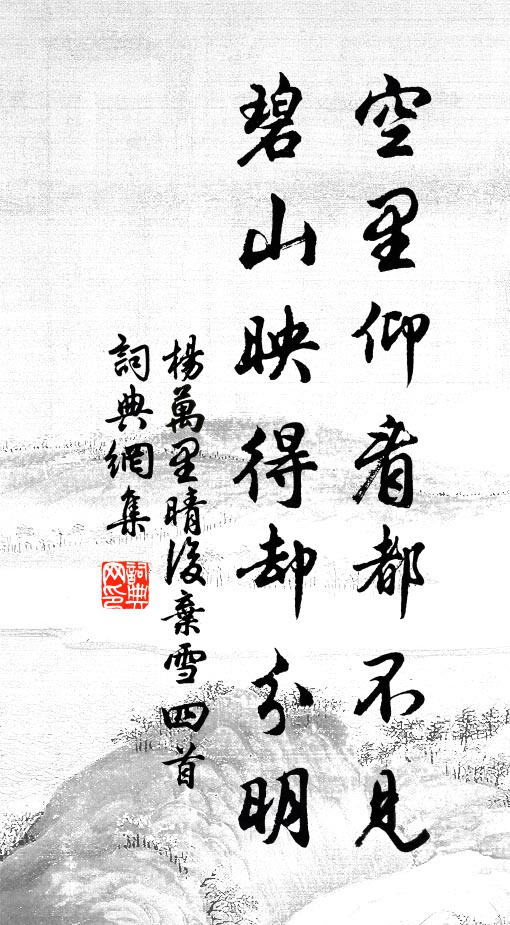 空里仰看都不見
碧山映得却分明
楊萬里晴後再雪四首
詞典網集
詞典
网印